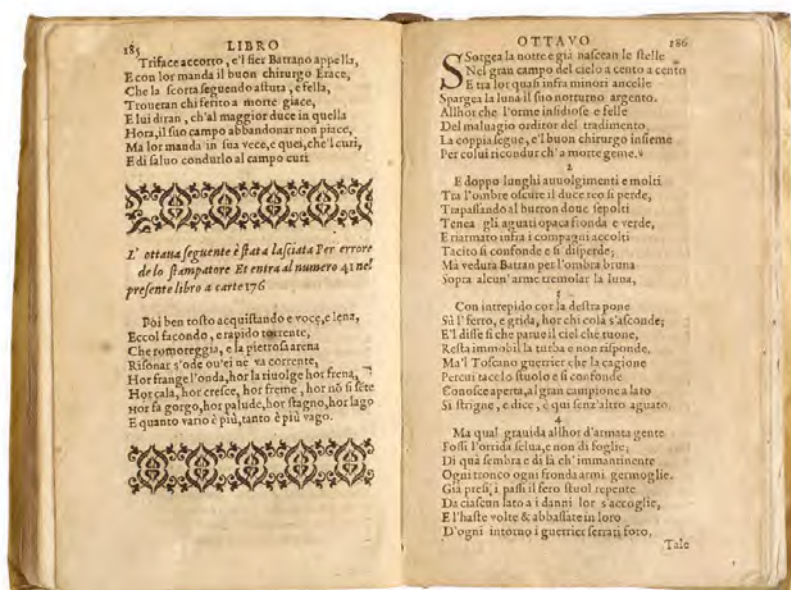 185 LIBRO
Triface accorto, e'l fier Battrano appella,
E con lor manda il buon chirurgo Erace,
Che la scorta seguendo astuta, e fella,
Troueran chi ferito a morte giace,
E lui diran, ch'al maggior duce in quella
Hora, il suo campo abbandonar non piace,
Ma lor manda in sua vece, e quei, che'l curi,
E di saluo condurlo al campo curi
L' ottaua seguente è stata lasciata Per errore
de lo stampatore Et entra al numero 41 nel
presente libro a carte 176
Poi ben tosto acquistando e voce, e lena,
Eccol facondo, e rapido torrente,
Che romoreggia, e la pietrosa arena
Risonar s'ode ou'ei ne va corrente,
Hor frange l'onda, hor la riuolge hor frena,
Hor cala, hor cresce, hor freme, hor nõ si sẽte
Hor fa gorgo, hor palude, hor stagno, hor lago
E quanto vario è più, tanto è più vago.
OTTAVO 186
SSorgea la notte e già nascean le stelle
Nel gran campo del cielo a cento a cento
E tra lor quasi infra minori ancelle
Spargea la luna il suo notturno argento.
Allhor che l'orme insidiose e felle
Del maluagio orditor del tradimento
La coppia segue, e'l buon chirurgo insieme
Per colui ricondur ch'a morte geme.
2
E doppo lunghi auuolgimenti e molti
Tra l'ombre oscure il duce reo si perde,
Trapassando al burron doue sepolti
Tenea gli aguati opaca fronda e verde,
E riarmato infra i compagni accolti
Tacito si confonde e si disperde;
Ma veduta Battran per l'ombra bruna
Sopra alcun'arme tremolar la luna,
3
Con intrepido cor la destra pone
Sù l'ferro, e grida, hor chi colà s'asconde;
E'l disse sì che parue il ciel che tuone,
Resta immobil la turba e non risponde.
Ma'l Toscano guerrier che la cagione
Percui tace lo stuolo e si confonde
Conosce aperta, al gran campione a lato
Si strigne, e dice, è qui senz'altro aguato.
4
Ma qual grauida allhor d'armata gente
Fossi l'orrida selua, e non di foglie;
Di quà sembra e di là ch'immantinente
Ogni tronco ogni fronda armi germoglie.
Già presi, i passi il fero stuol repente
Da ciascun lato a i danni lor s'accoglie,
E l'haste volte & abbassate in loro
D'ogni intorno i guerrier serrati foro.
Tale